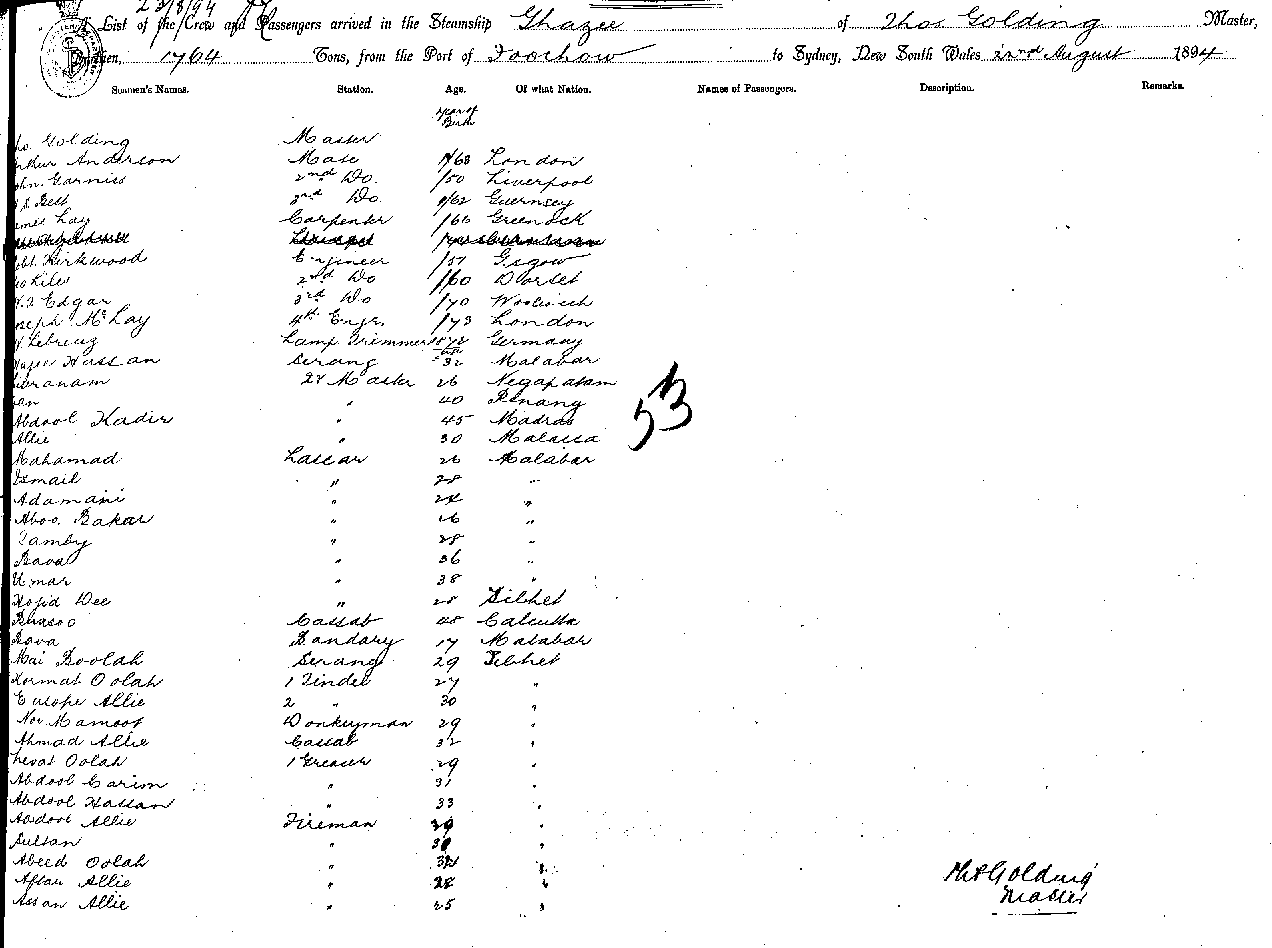 23/8/94
A List of the Crew and Passengers arrived in the Steamship Ghazee of Thos Golding Master,
Burthen, 1764 Tons, from the Port of Foochow to Sydney, New South Wales 22nd August 1894
Seamen's Names. Station. Age. Of what Nation. Names of Passengers. Description. Remarks.
Year of
Birth
ho. Golding Master
rthur Anderson Mate /68 London
ohn. Garniss 2nd Do. /50 Liverpool
Bell 3rd Do. /62 Guernsey
ames Lay Carpenter /66 Greenock
obt. Kirkwood Engineer /57 Gsgow
Kiles 2nd Do /60 Dorset
Edgar 3rd Do /70 Woolwich
oseph McLay 4th Engr. /73 London
Lamp Trimmer 1872 Germany
Hassan Serang 32 Malabar
Master 26 Negapatam
an " 40 Penang
Abdool Kadir " 45 Madras
Allie " 30 Malacca
Mahamad Lascar 26 Malabar
Ismail " 28 "
Adamani " 24 "
Aboo. Bakar " 26 "
Tamby " 28 "
Bava " 36 "
Umar " 38 "
Dee " 28 Silhet
Cassab 40 Calcutta
Bava Bandary 17 Malabar
Mai Boolah Serang 29 Silhet
Kormat Oolah 1 Tindel 27 "
Europe Allie 2 " 30 "
Nor Mamoot Donkeyman 29 "
Ahmad Allie Cassab 32 "
Oolah 1 Greaser 29 "
Abdool Carim " 31 "
Abdool Hassan " 33 "
Abdool Allie Fireman 29 "
Sultan " 30 "
Abeed Oolah " "
Aftar Allie " 28 "
Assan Allie " 25 "
53
Golding
Master